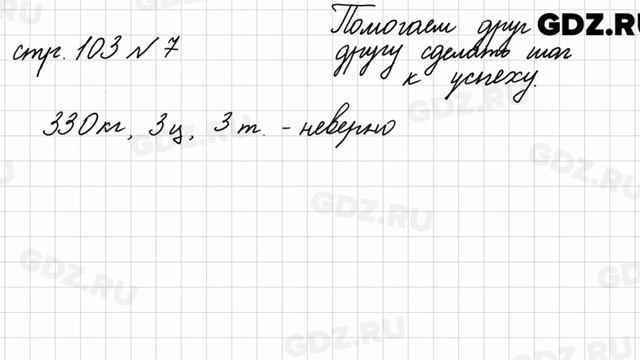 стр. 103 № 7
Помогаем друг
другу сделать шаг
к успеху.
GDZ.RU
330 кг, 3 ц, 3 т. - неверно
GDZ.RU
GDZ.RU
GDZ.RU
GDZ.RU
GDZ.RU
GDZ.RU
GDZ.RU